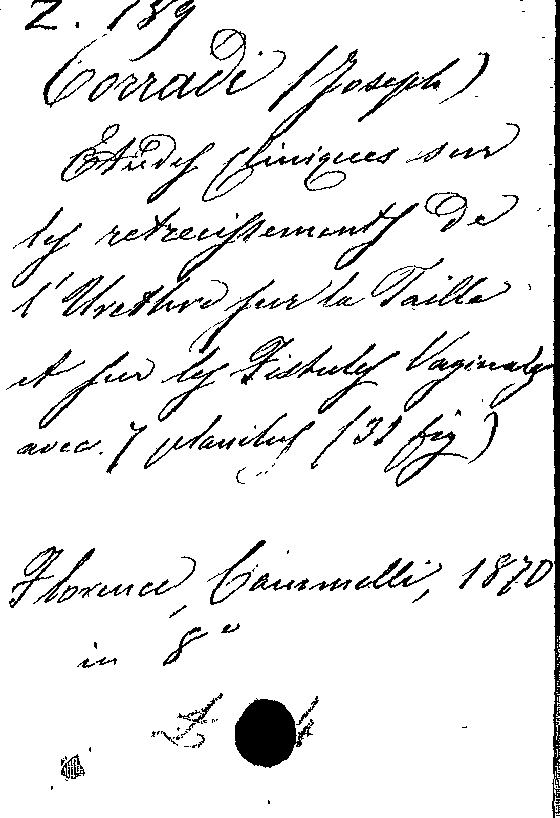 Z. 189
Corradi (Joseph)
Etudes cliniques sur
les retrecissements de
l'Urethre sur la Taille
et sur les Fistules Vaginales
avec 7 planches (31 fig)
Florence, 1870
in 8°